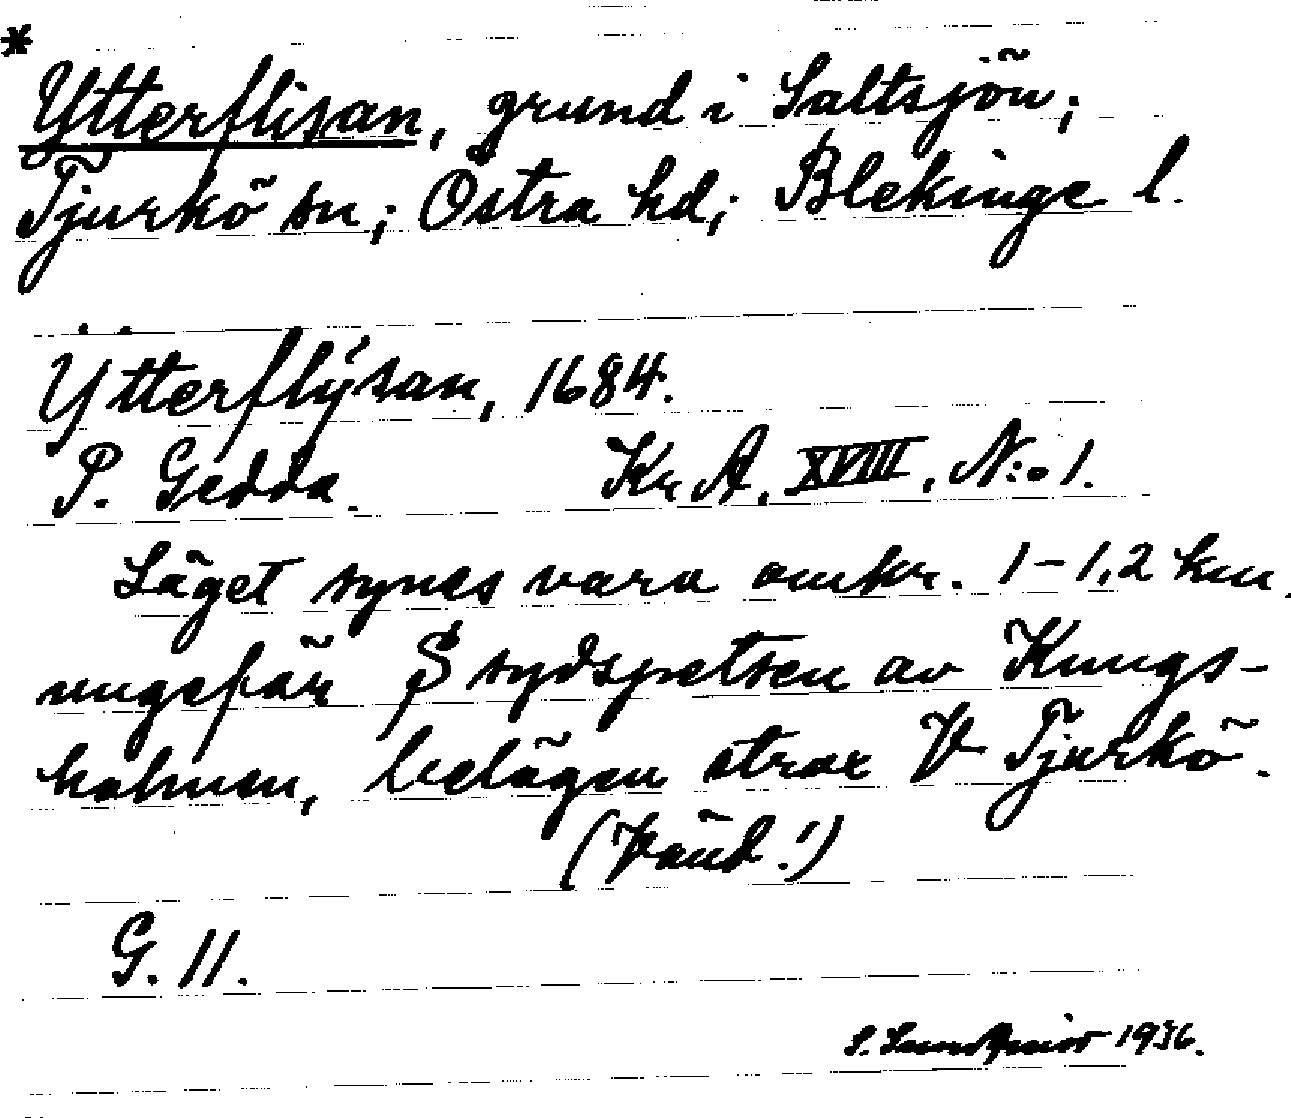 *
Ytterflisan, grund i Saltsjön;
Tjurkö sn; Östra hd; Blekinge l.
Ytterflÿsan, 1684.
P. Gedda. Kr. A. XVIII, N:o 1.
Läget synes vara omkr. 1-1,2 km.
ungefär S sydspetsen av Kungs-
holmen, belägen strax V Tjurkö.
(Vänd!)
G. 11.
S. 1936.